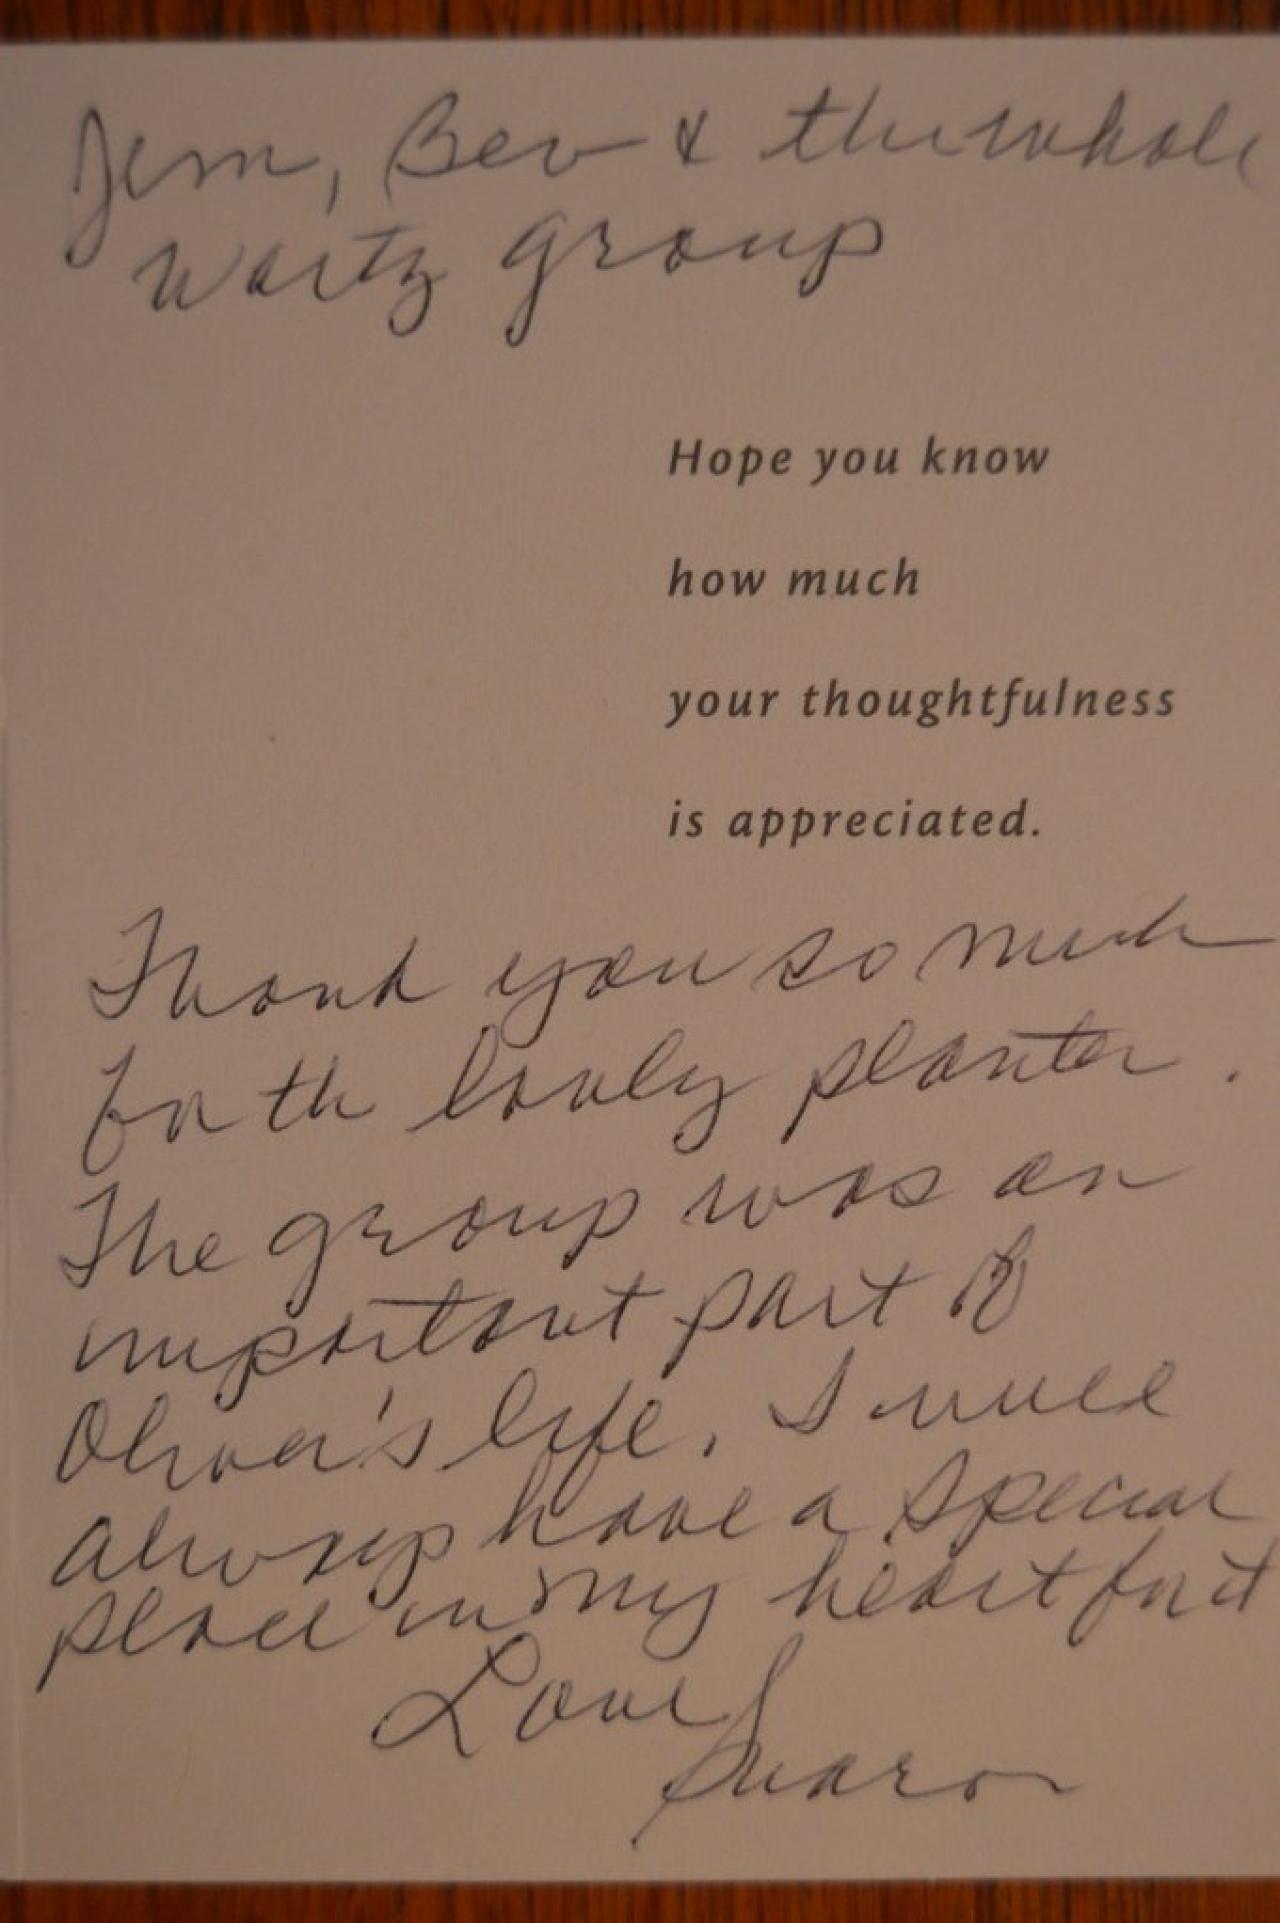 Jem, Bev & the whole
Wartz group
Hope you know
how much
your thoughtfulness
is appreciated.
Thank you so much
for th lovely planter.
The group was an
important part of
Oliver's life. I will
always have a special
place in my heart for it
Love
Sharon